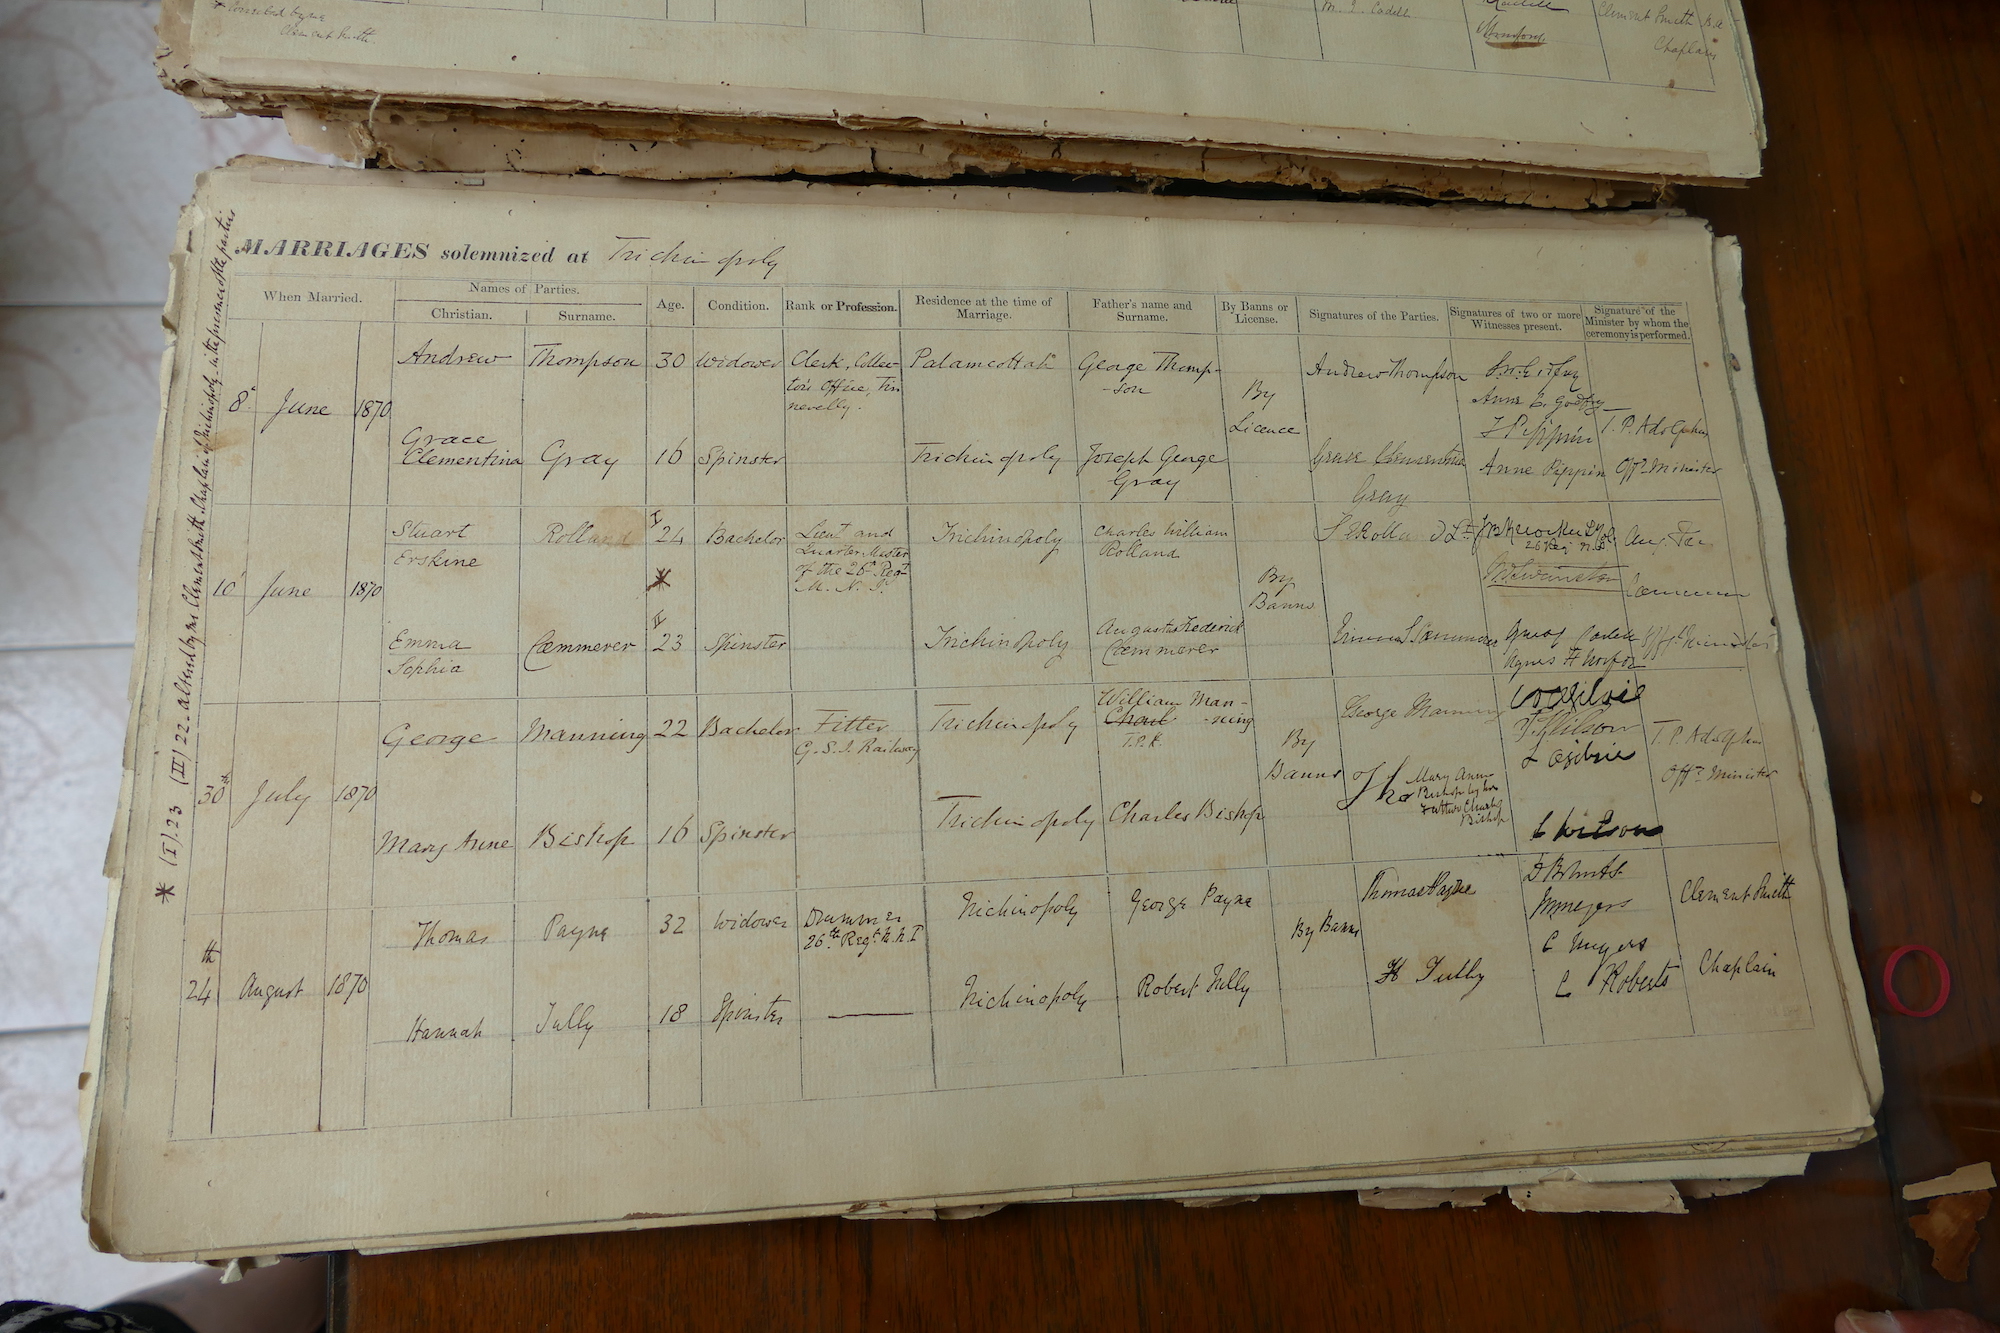 Corrected by me
Clement Smith
M. I. Cadell
Clement Smith B.A.
Chaplain
MARRIAGES solemnized at Trichinopoly
When Married.
Names of Parties.
Christian.
Surname.
Age.
Condition.
Rank or Profession.
Residence at the time of
Marriage.
Father's name and
Surname.
By Banns or
License.
Signatures of the Parties.
Signatures of two or more
Witnesses present.
Signature of the
Minister by whom the
ceremony is performed.
8 June 1870
Andrew Thompson 30 Widower
Clerk, Collec-
tor's Office, Tin
nevelly.
Palamcottah
George Thomp-
-son
By
Licence
Andrew Thompson
Anne E. Godfrey
Pippin
Anne Pippin
T. P. Adolphus
Offg Minister
Grace
Clementina Gray 16 Spinster
Trichinopoly
Joseph George
Gray
Grace Clementina
Gray
10 June 1870
Stuart
Erskine
Rolland
I
24
*
Bachelor
Lieut and
Quarter Master
of the 26th Regt
M. N. I.
Trichinopoly
Charles William
Rolland
By
Banns
26 Reg N.I.
Aug. Fred
Cæmmerer
Offg Minister
Emma
Sophia
Cæmmerer
II
23
Spinster
Trichinopoly
Augustus Frederick
Cæmmerer
Emma S Cæmmerer
30th July 1870
George Manning 22 Bachelor
Fitter
G. S. I. Railway
Trichinopoly
William Man-
-ning
T.P.A.
By
Banns
George Manning
W Ogilvie
J. Wilson
L Ogilvie
C Wilson
T. P. Adolphus
Offg Minister
Mary Anne Bishop 16 Spinster
Trichinopoly
Charles Bishop
Mary Anne
Bishop by her
Father Charles
Bishop
24th August 1870
Thomas Payne 32 Widower
Drummer
26th Regt M. N. I
Trichinopoly
George Payne
By Banns
Thomas Payne
C Meyers
C Roberts
Clement Smith
Chaplain
Hannah Tully 18 Spinster
Trichinopoly
Robert Tully
H Tully
* (I) 23 (II) 22 - altered by me Clement Smith. Chaplain of Trichinopoly - in the presence of the parties